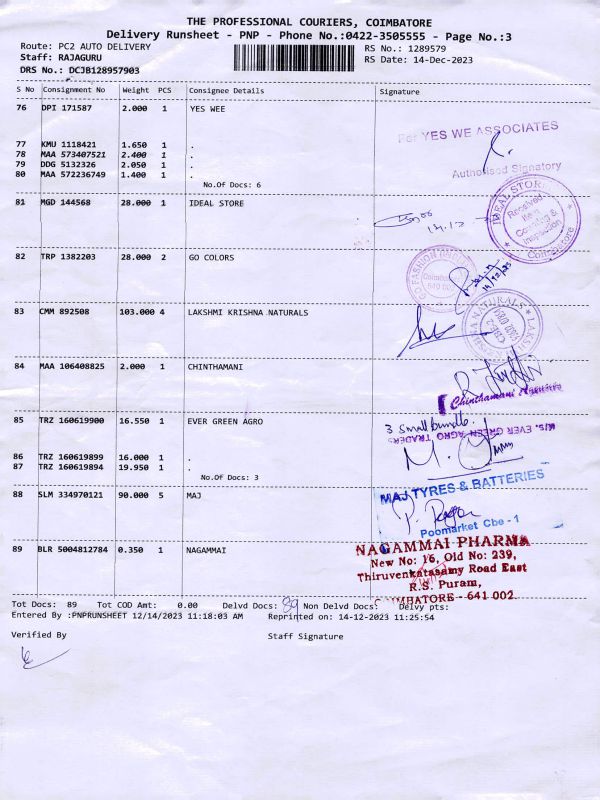 THE PROFESSIONAL COURIERS, COIMBATORE
Delivery Runsheet - PNP - Phone No.:0422-3505555 - Page No.:3
Route: PC2 AUTO DELIVERY RS No.: 1289579
Staff: RAJAGURU RS Date: 14-Dec-2023
DRS No.: DCJB128957903
S No Consignment No Weight PCS Consignee Details Signature
76 DPI 171587 2.000 1 YES WEE
For YES WE ASSOCIATES
77 KMU 1118421 1.650 1 .
78 MAA 573407521 2.400 1 .
79 DDG 5132326 2.050 1 .
80 MAA 572236749 1.400 1 .
Authorised Signatory
No.Of Docs: 6
81 MGD 144568 28.000 1 IDEAL STORE
IDEAL STORE
Received
Item
Counting &
Inspection
Coimbatore
82 TRP 1382203 28.000 2 GO COLORS
14/12/23
83 CMM 892508 103.000 4 LAKSHMI KRISHNA NATURALS
84 MAA 106408825 2.000 1 CHINTHAMANI
Chinthamani Agencies
85 TRZ 160619900 16.550 1 EVER GREEN AGRO
3 Small bundle.
M/s. EVER GREEN AGRO TRADERS
86 TRZ 160619899 16.000 1 .
87 TRZ 160619894 19.950 1 .
No.Of Docs: 3
88 SLM 334970121 90.000 5 MAJ
MAJ TYRES & BATTERIES
Poomarket Cbe - 1
89 BLR 5004812784 0.350 1 NAGAMMAI
NAGAMMAI PHARMA
New No: 16, Old No: 239,
Thiruvenkatasamy Road East
R.S. Puram,
COIMBATORE - 641 002.
Tot Docs: 89 Tot COD Amt: 0.00 Delvd Docs: 89 Non Delvd Docs: Delvy pts:
Entered By :PNPRUNSHEET 12/14/2023 11:18:03 AM Reprinted on: 14-12-2023 11:25:54
Verified By Staff Signature